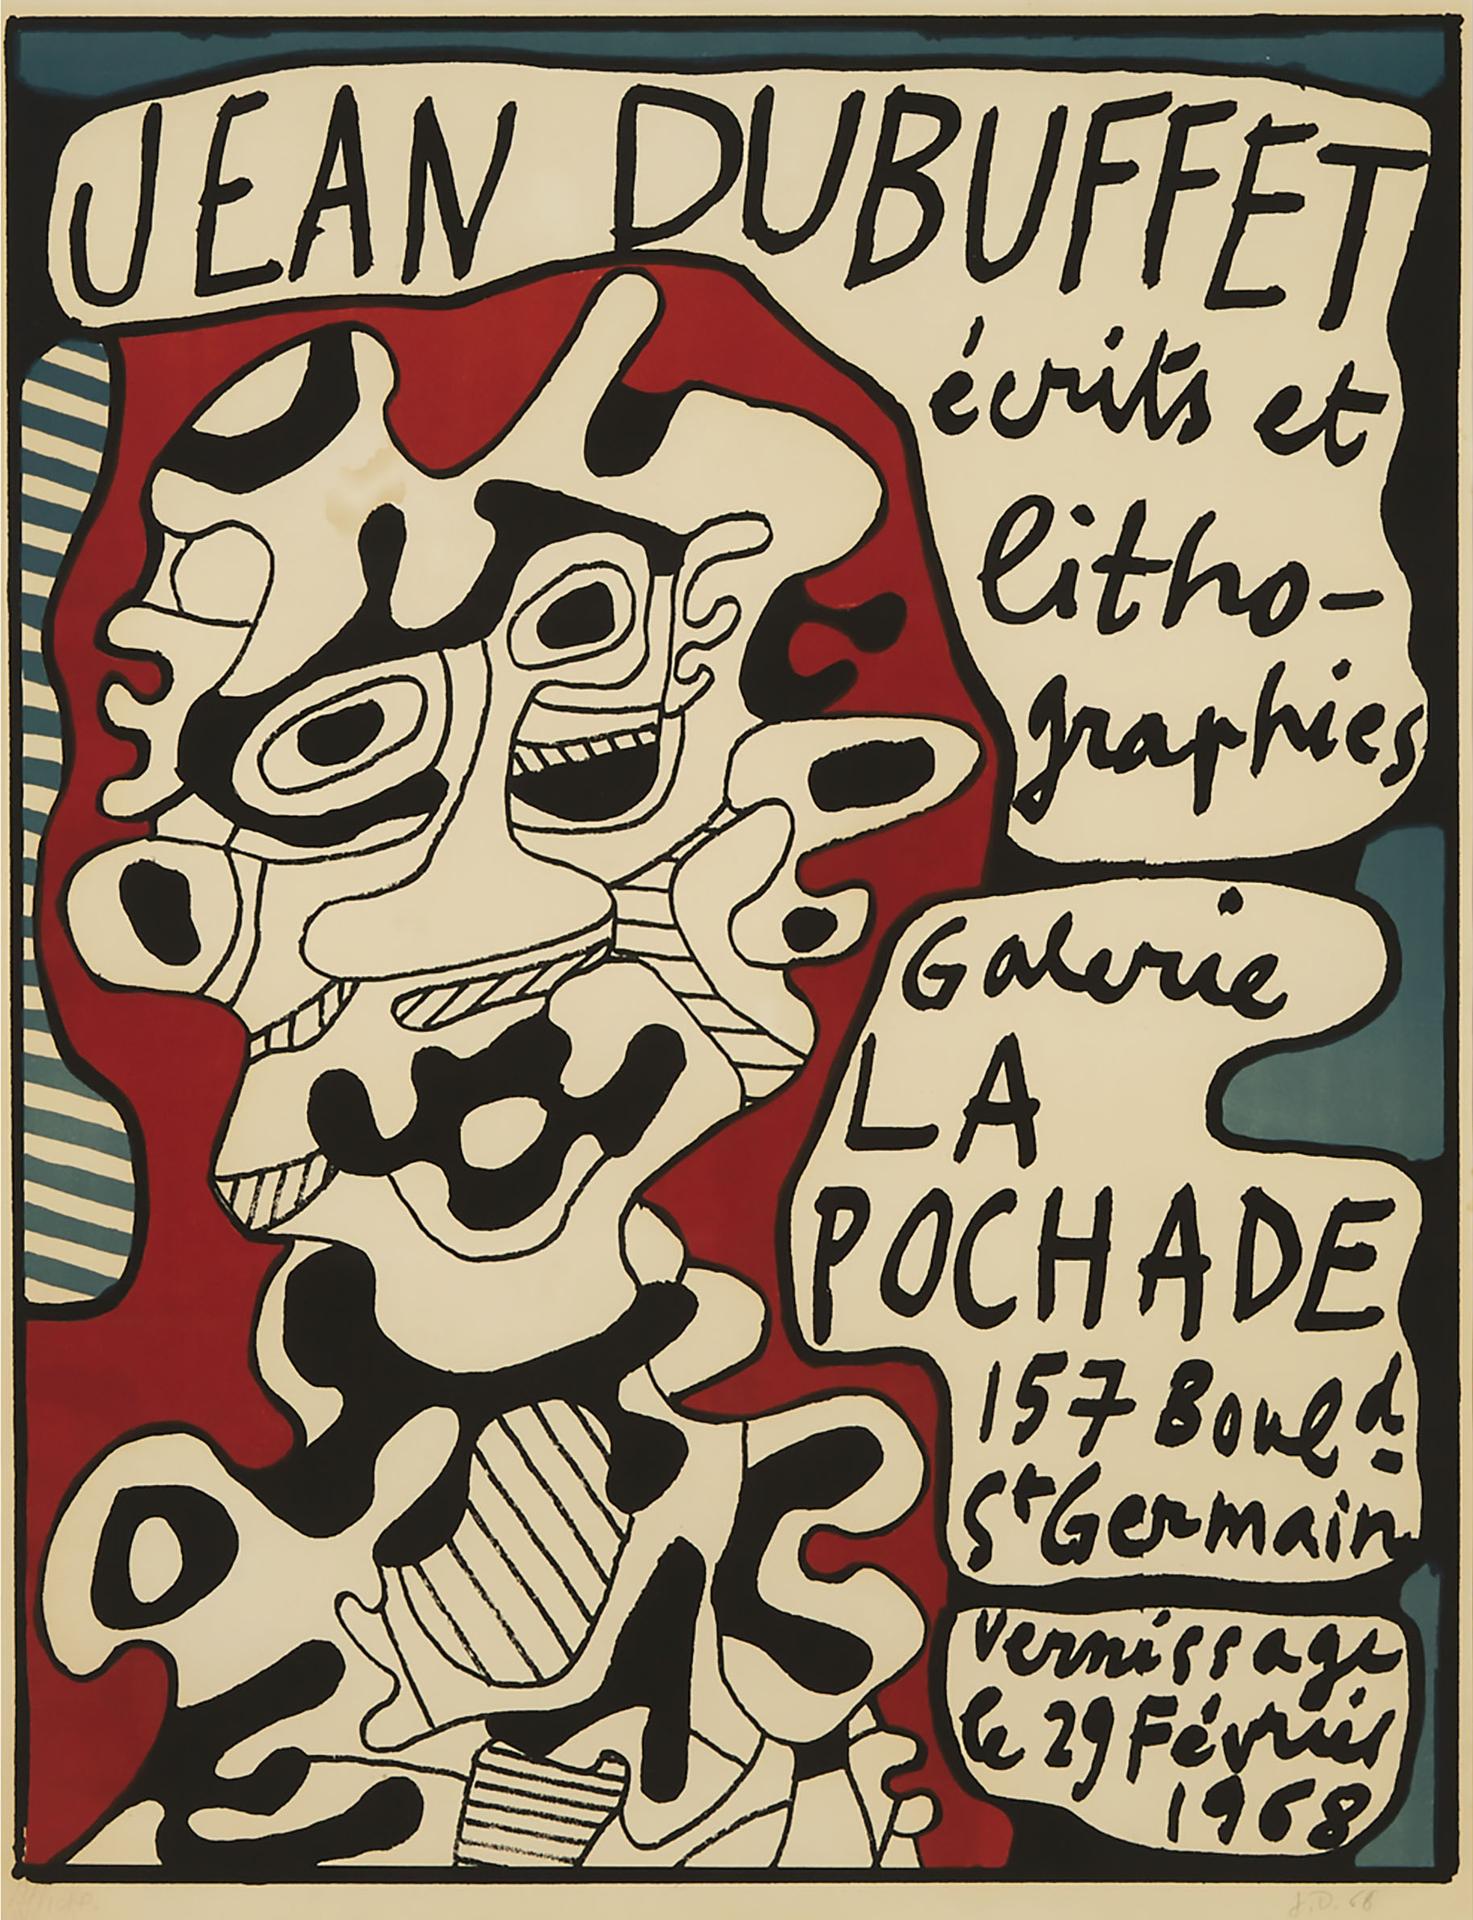 JEAN DUBUFFET
écrits et
litho-
graphies
Galerie
LA
POCHADE
157 Bould
St Germain
Vernissage
le 29 Février
1968
Affiche.
J.D. 68